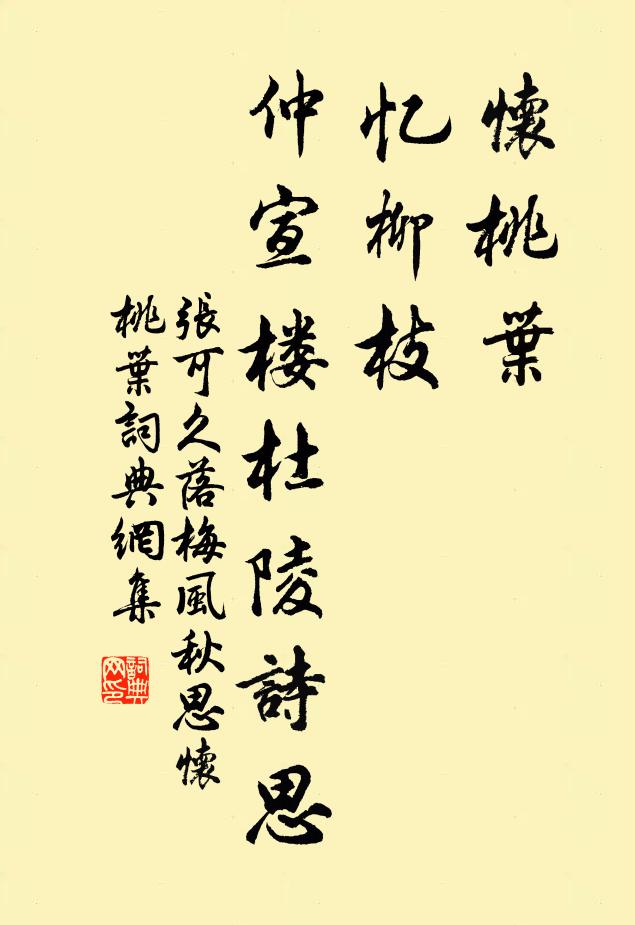 懷桃葉
忆柳枝
仲宣楼杜陵詩思
張可久落梅風秋思懷
桃葉詞典網集
詞典网印